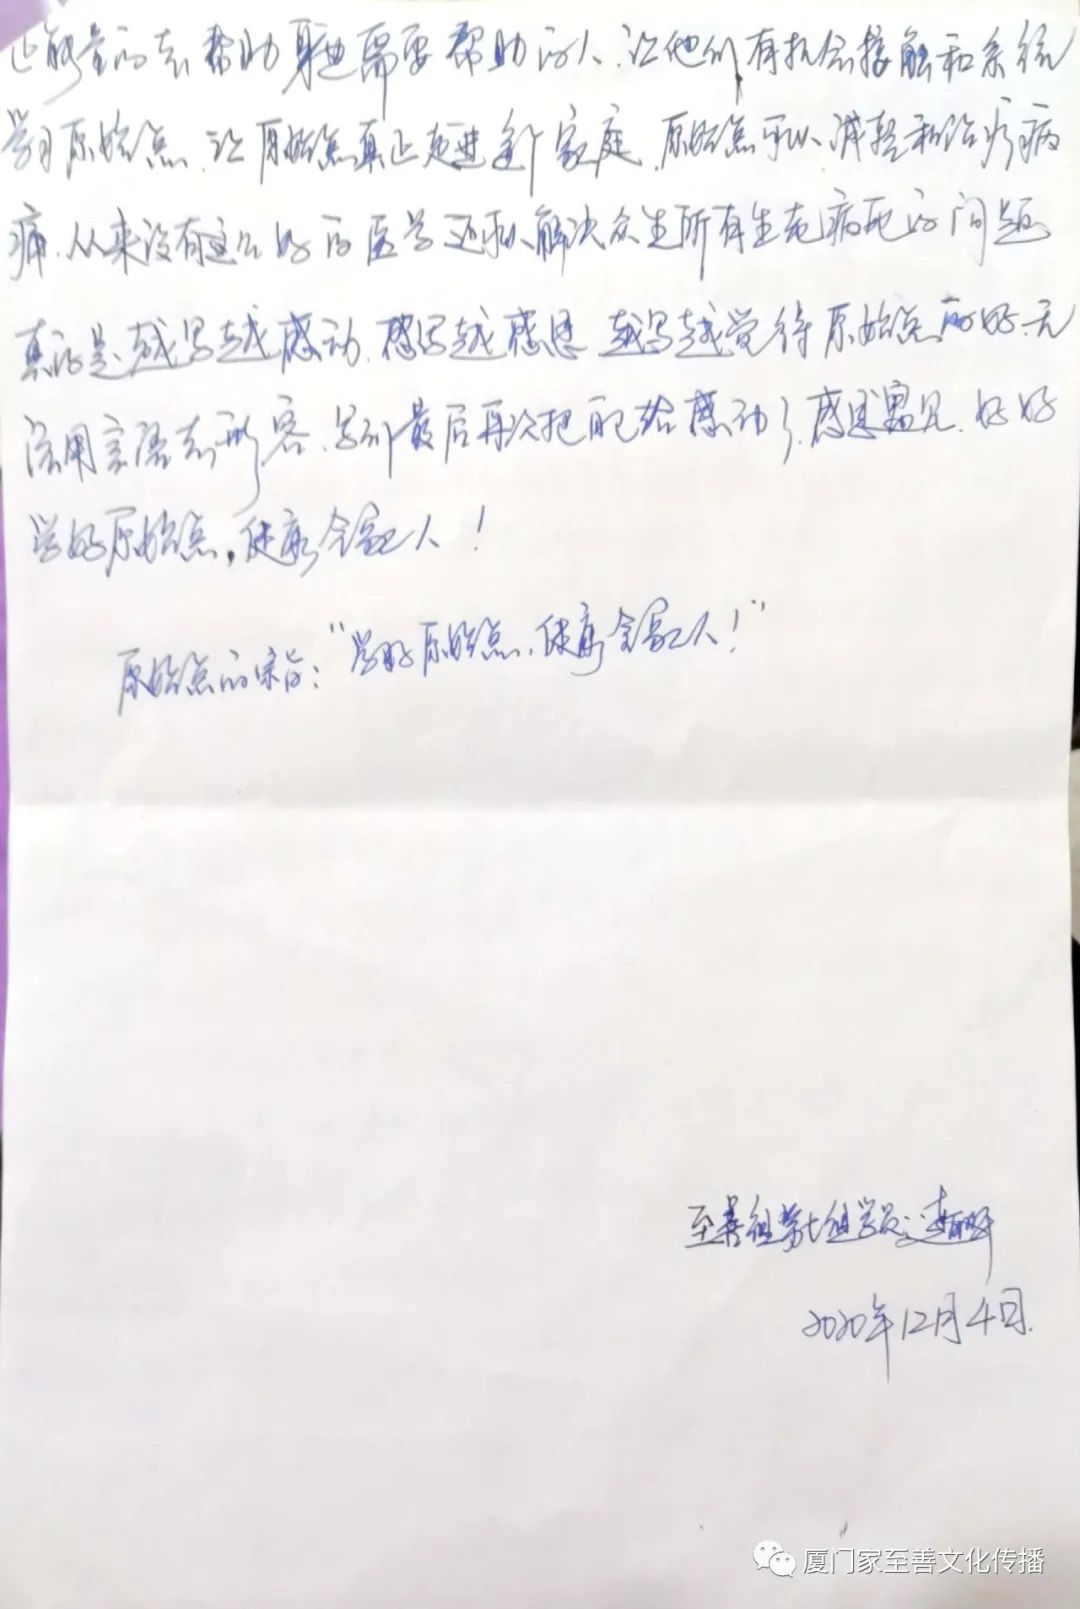 正能量的去帮助身边需要帮助的人.让他们有机会接触和系统
学习原始点.让原始点真正走进每个家庭.原始点可以减轻和治疗病
痛.从来没有这么好的医学还可以解决众生所有生老病死的问题
真的是越写越感动.越写越感恩 越写越觉得原始点的好.无
法用言语去形容.写到最后再次把自己给感动了.感恩遇见.好好
学好原始点,健康全家人!
原始点的宗旨:"学好原始点.健康全家人!"
至善组第七组学员:
2020年12月4日.
厦门家至善文化传播